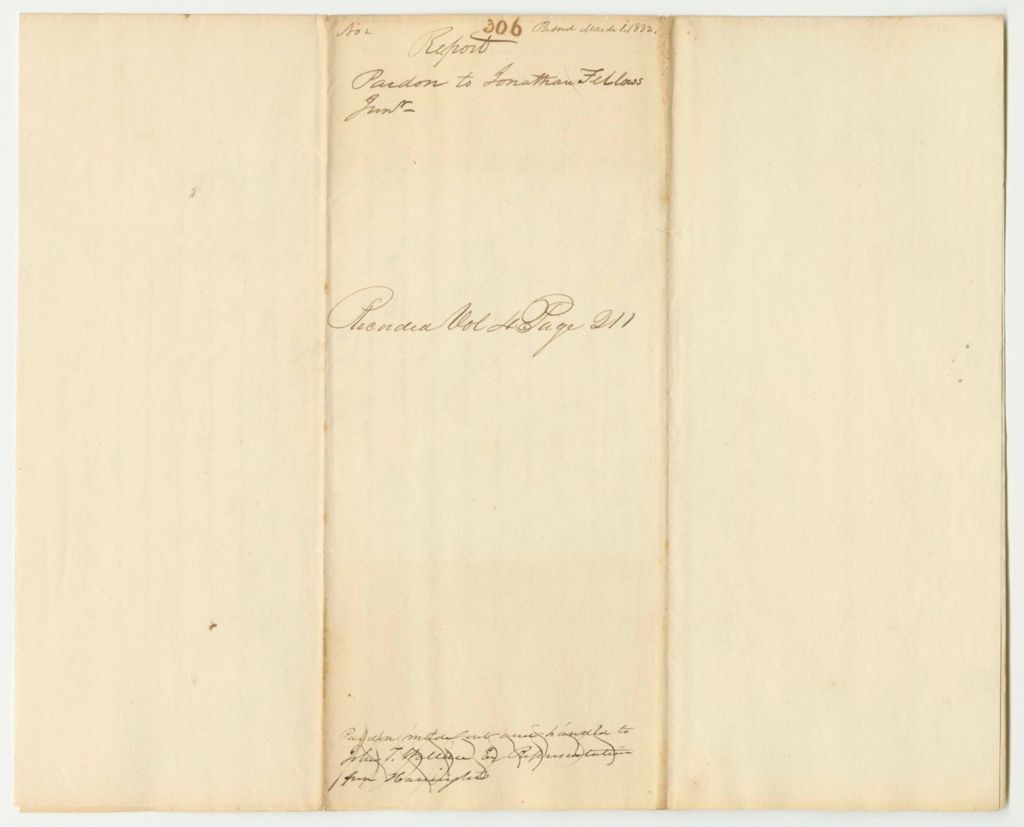 No 2 306 Passed March 1. 1832.
Report
Pardon to Jonathan Fellows
Junr
Recorded Vol 4 Page 211
Pardon made out and handed to
John T. Wallace Esq Representative
from Harrington